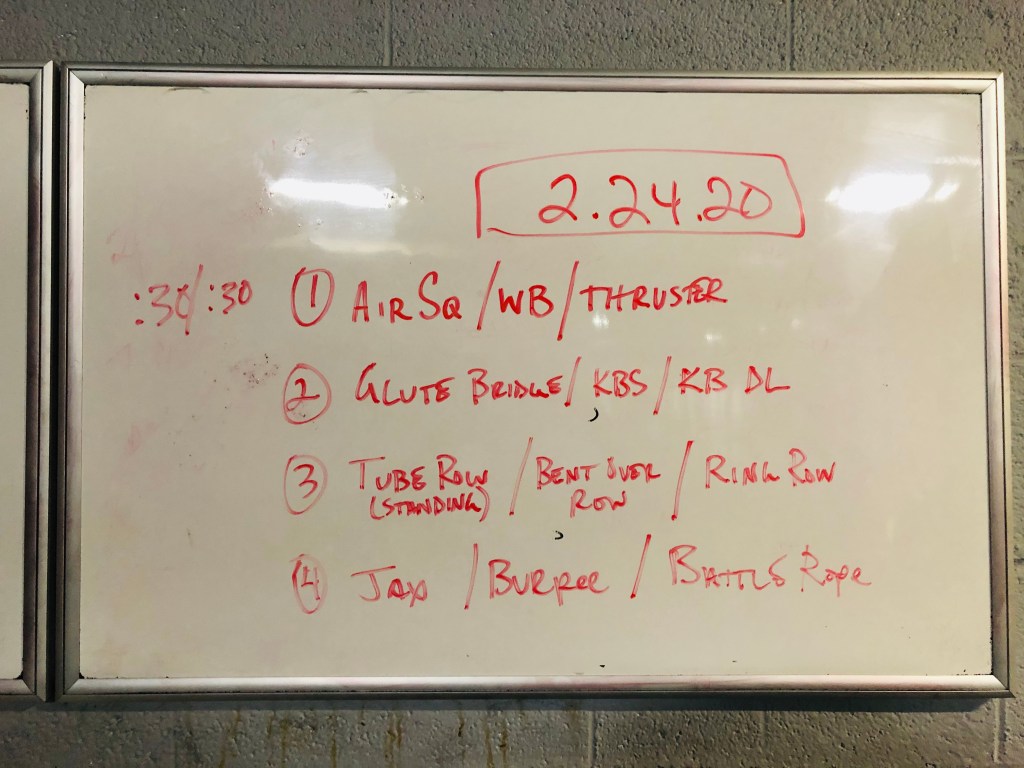 2.24.20
:30/:30 1 AIR SQ / WB / THRUSTER
2 GLUTE BRIDGE / KBS / KB DL
3 TUBE ROW / BENT OVER / RING ROW
(STANDING) ROW
4 JAX / BURPEE / BATTLE ROPE